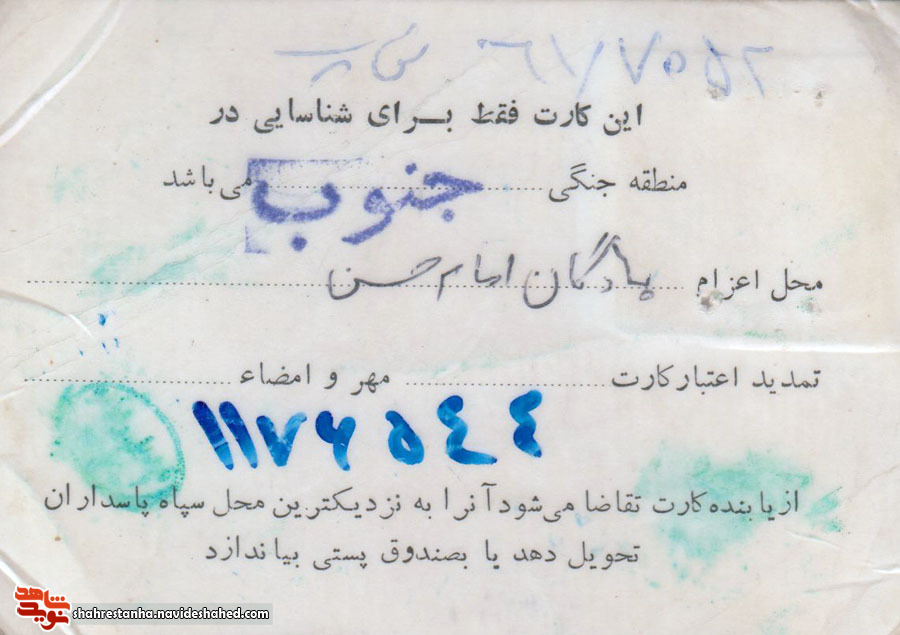 ۶۱/۷۵۵۲
این کارت فقط برای شناسایی در
منطقه جنگی ........ جنوب ........ می‌باشد
محل اعزام ........ پادگان امام حسن ........
تمدید اعتبار کارت ........ مهر و امضاء ........
۱۱۷۶۵۴۴
از یابنده کارت تقاضا می‌شود آنرا به نزدیکترین محل سپاه پاسداران
تحویل دهد یا بصندوق پستی بیاندازد
نوید شاهد
shahrestanha.navideshahed.com